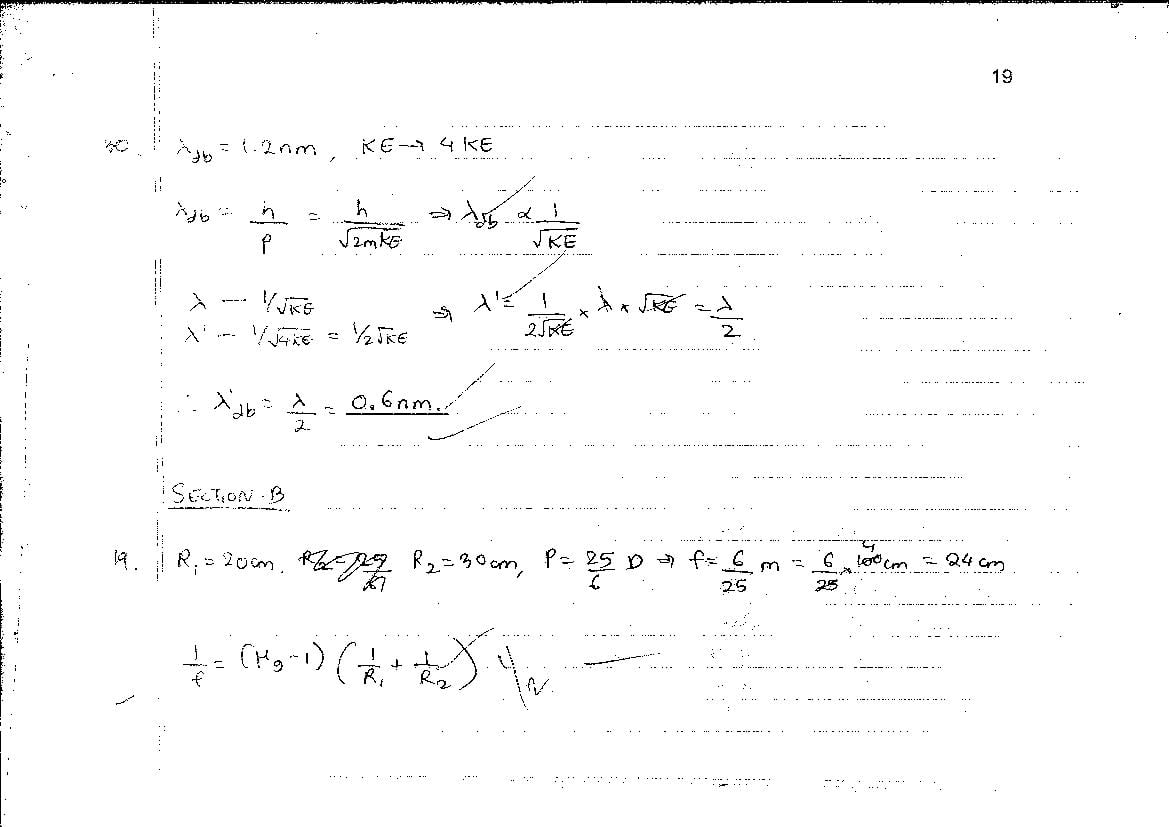 19
30. λdb = 1.2nm, KE → 4 KE
λdb = h/p = h/√2mKE ⇒ λdb ∝ 1/√KE
λ — 1/√KE
λ' — 1/√4KE = 1/2√KE ⇒ λ' = 1/2√KE × λ × √KE = λ/2
∴ λ'db = λ/2 = 0.6nm.
SECTION-B
19. R₁ = 20cm. R₂ = 30cm, P = 25/6 D ⇒ f = 6/25 m = 6/25 × 100 cm = 24 cm
1/f = (μg - 1) (1/R₁ + 1/R₂)